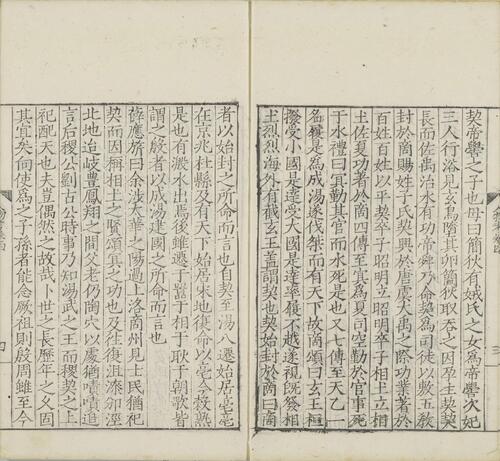 契帝嚳之子也母曰簡狄有娀氏之女爲帝嚳次妃
三人行浴見玄鳥墮其卵簡狄取吞之因孕生契契
長而佐禹治水有功帝舜乃命契爲司徒以敷五教
封於商賜姓子氏契興於唐虞大禹之際功業著於
百姓百姓以平契卒子昭明立昭明卒子相土立相
土佐夏功著於商四傳至宜爲夏司空勤於官事死
于水禮曰宜勤其官而水死是也又七傳至天乙一
名履是爲成湯遂伐桀而有天下故商頌曰玄王桓
撥受小國是達受大國是達率履不越遂視既發相
土烈烈海外有截玄王蓋謂契也契始封於商曰商
者以始封之所命而言也自契至湯八遷始居亳亳
在京兆杜縣及有天下始居宋地復命以亳今穀熟
是也有澱水出焉後雖遷于囂于相于耿子朝歌皆
謂之殷者以成湯建國之所命而言也
薛應旂曰余涉渭華之陽過上洛商州見士民猶祀
契而因稱相土之賢頌宜之功也及往復沮漆卯涇
北地迨岐豐鳳翔之間父老仍陶穴以處嘖嘖追
言后稷公劉古公時事乃知湯武之王而稷契之上
祀配天也夫豈偶然之故哉卜世之長歷年之久固
其宜矣向使爲之子孫者能念厥祖則殷周雖至今